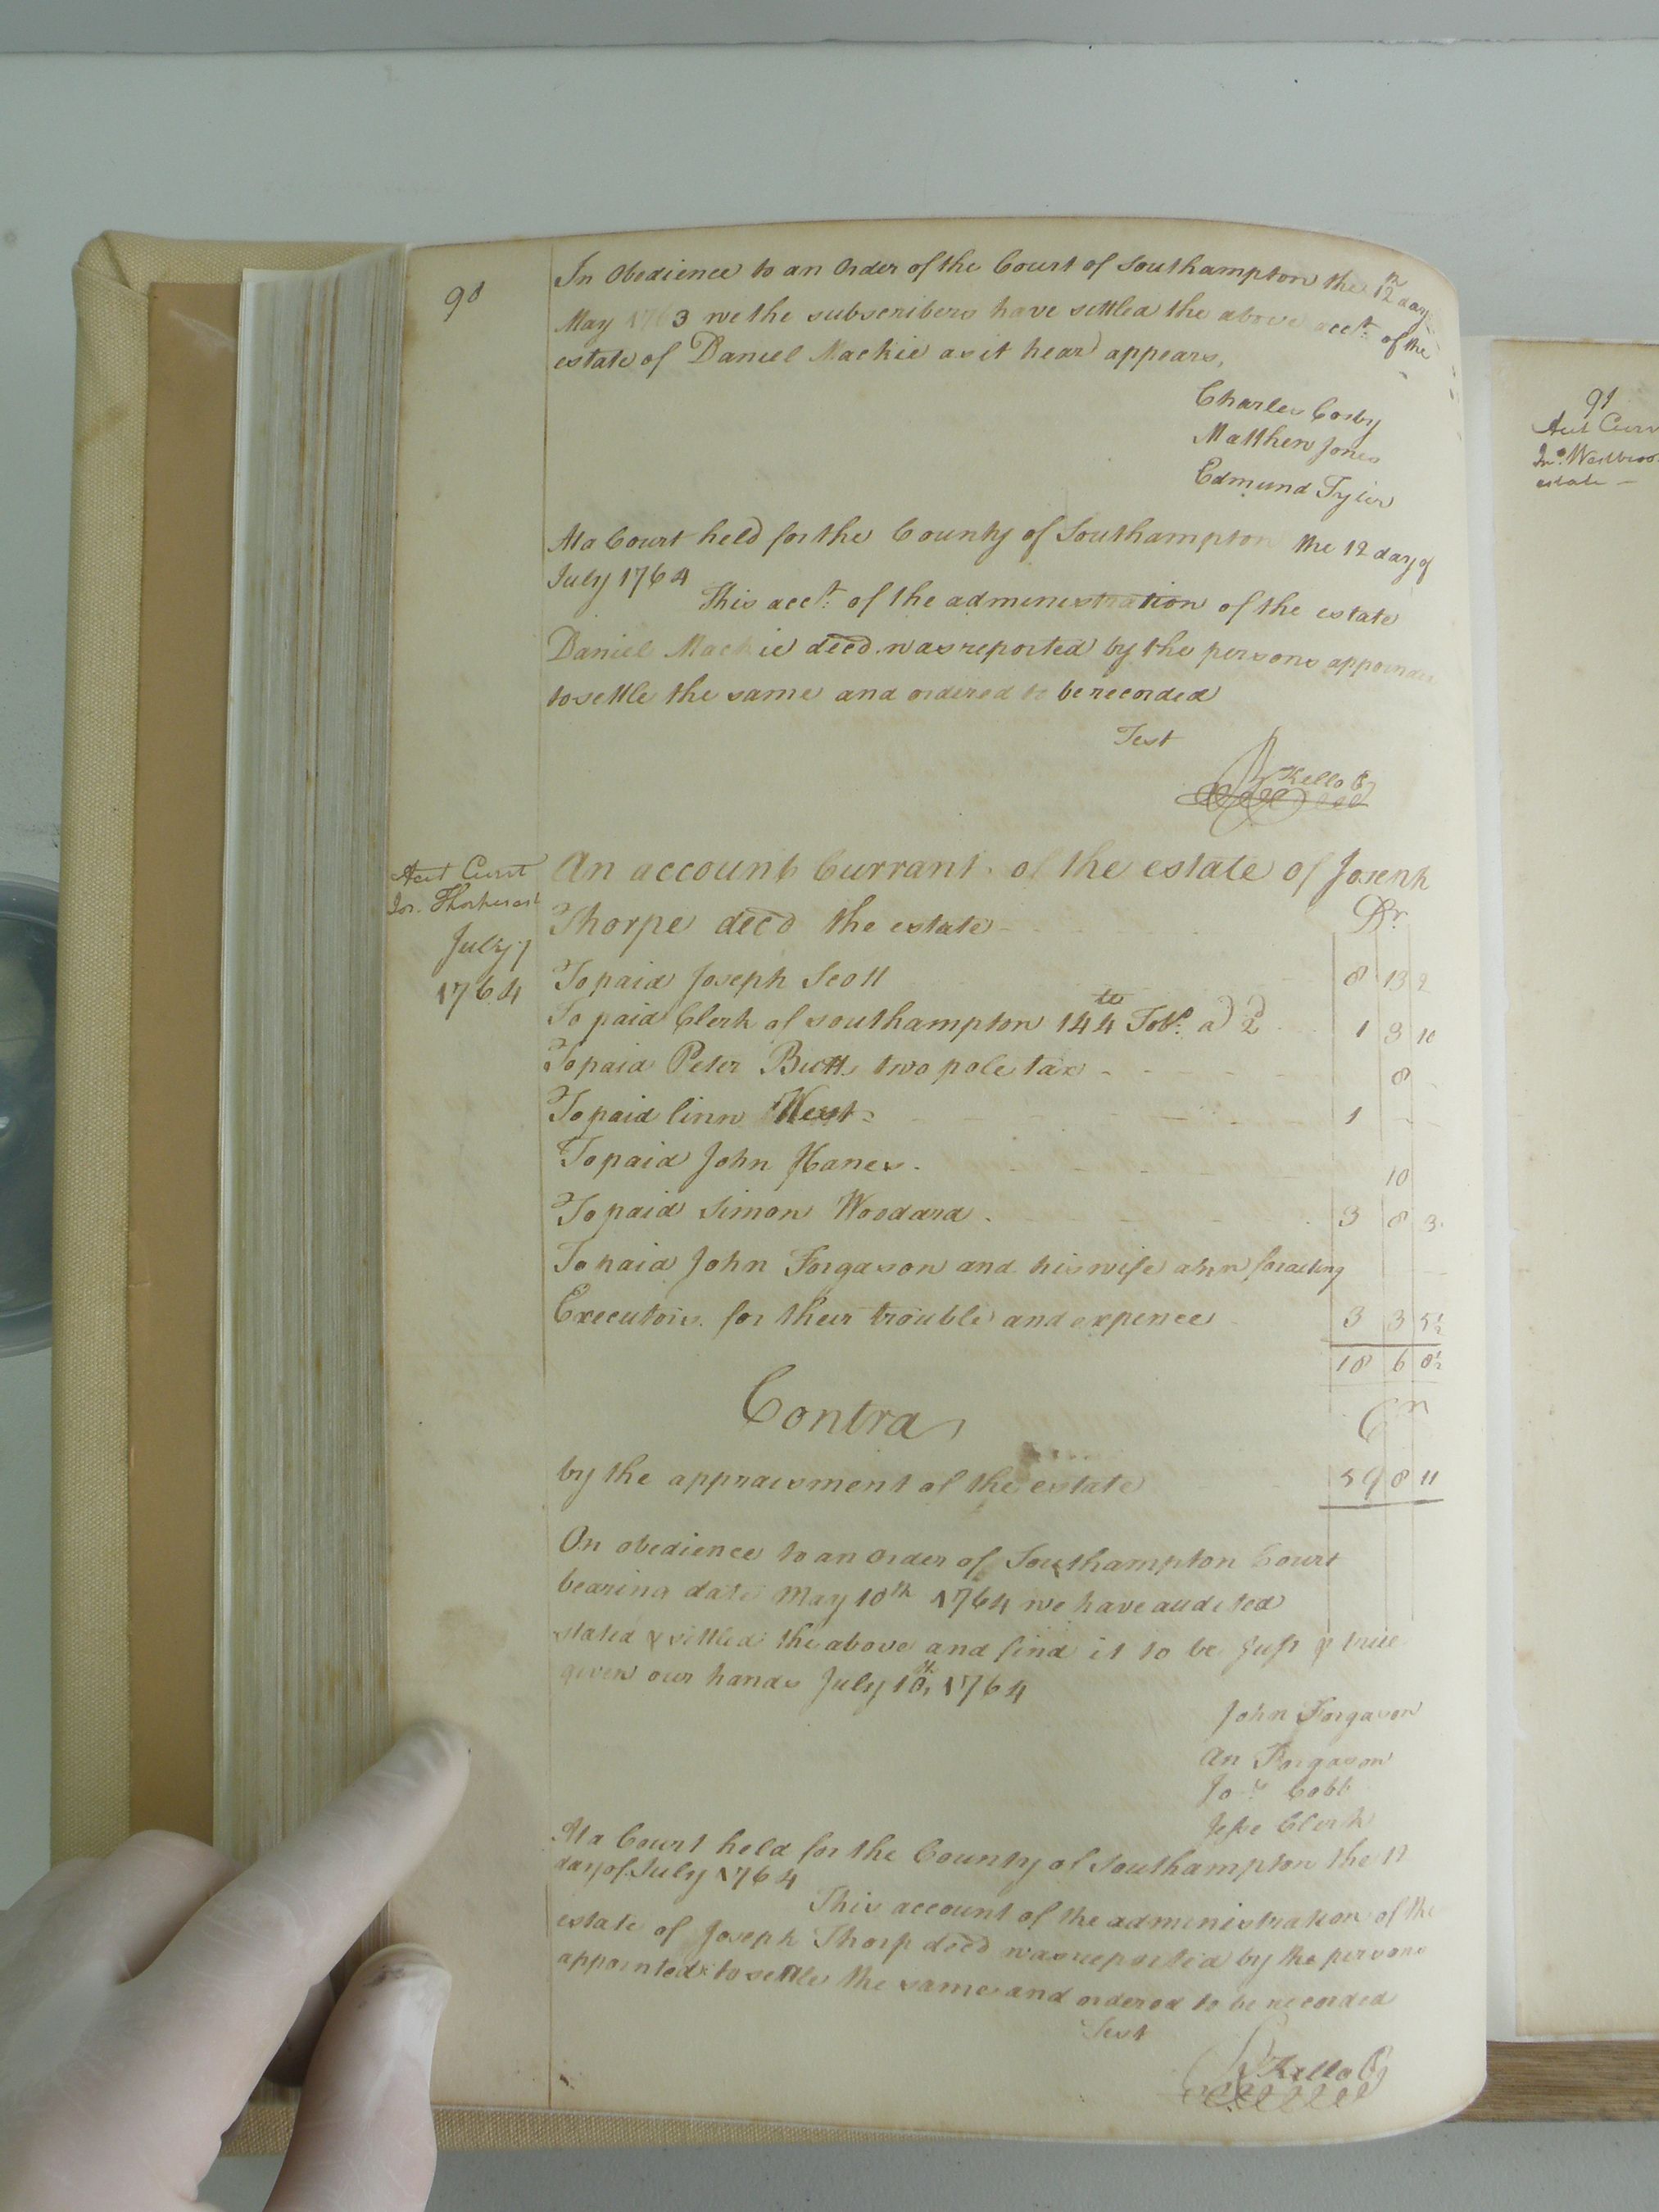 90
In Obedience to an Order of the Court of Southampton the 12th day
May 1763 we the subscribers have settled the above acct. of the
estate of Daniel Mackie as it heard appears,
Charles Cosby
Matthew Jones
Edmund Tyler
At a Court held for the County of Southampton the 12 day of
July 1764
This acct. of the administration of the estate
Daniel Mackie decd. was reported by the persons appointed
to settle the same and ordered to be recorded
Test
R Kello C
Acct Currt
Jos. Thorpes est
July
1764
An account Currant of the estate of Joseph
Thorpe decd the estate Dr.
To paid Joseph Scott 8 13 2
To paid Clerk of southampton 144 lb Tobo. a 2d 1 3 10
To paid Peter Butts two pole tax 8
To paid linn West 1
To paid John Hanes 10
To paid Simon Woodard 3 8 3
To paid John Forgason and his wife ann for acting
Executors for their trouble and expence 3 3 5½
18 6 8½
Contra Cr
by the appraisment of the estate 59 8 11
On obedience to an Order of Southampton Court
bearing date May 10th 1764 we have audited
stated & settled the above and find it to be Just & true
given our hands July 10th 1764
John Forgason
An Forgason
Jos. Cobb
Jesse Clerk
At a Court held for the County of Southampton the 12
day of July 1764
This account of the administration of the
estate of Joseph Thorp decd was reported by the persons
appointed to settle the same and ordered to be recorded
Test
R Kello C
91
Acct Curr
Jno. Westbroo
estate